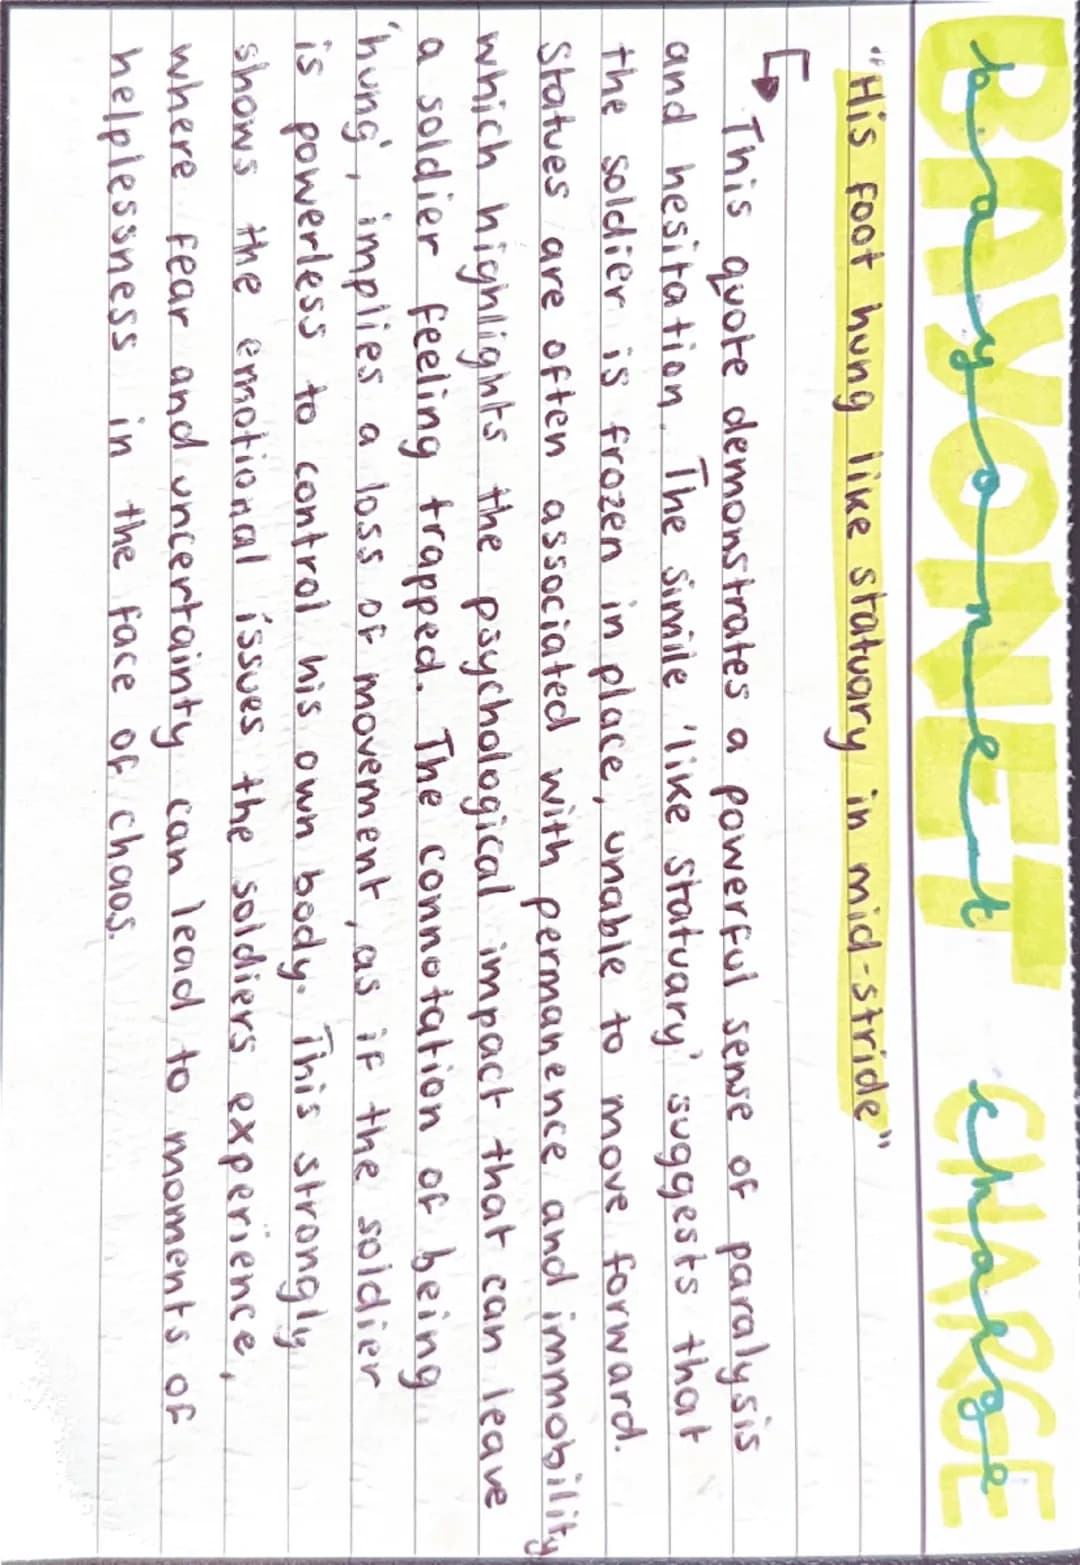 BAYONET CHARGE
bayonet charge
"His foot hung like statuary in mid-stride"
This quote demonstrates a powerful sense of paralysis
and hesitation. The simile 'like statuary' suggests that
the soldier is frozen in place, unable to move forward.
Statues are often associated with permanence and immobility
which highlights the psychological impact that can leave
a soldier feeling trapped. The connotation of being
'hung', implies a loss of movement, as if the soldier
is powerless to control his own body. This strongly
shows the emotional issues the soldiers experience,
where fear and uncertainty can lead to moments of
helplessness in the face of chaos.